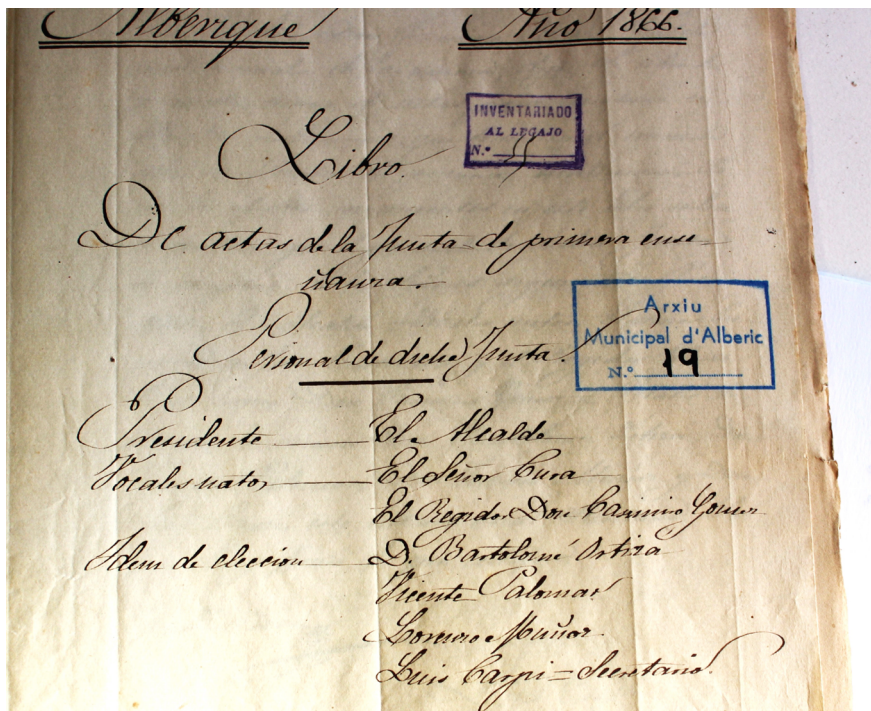 Alberique Año 1866.
INVENTARIADO
AL LEGAJO
N.º
Libro.
De actas de la Junta de primera ense-
ñanza.
Arxiu
Municipal d'Alberic
N.º 19
Personal de dicha Junta.
Presidente El Alcalde
Vocales natos El Señor Cura
El Regidor Don Casimiro Gomez
Idem de eleccion D. Bartolomé Ortiza
Vicente Palomar
Lorenzo Muñoz
Luis Carpi = Secretario.